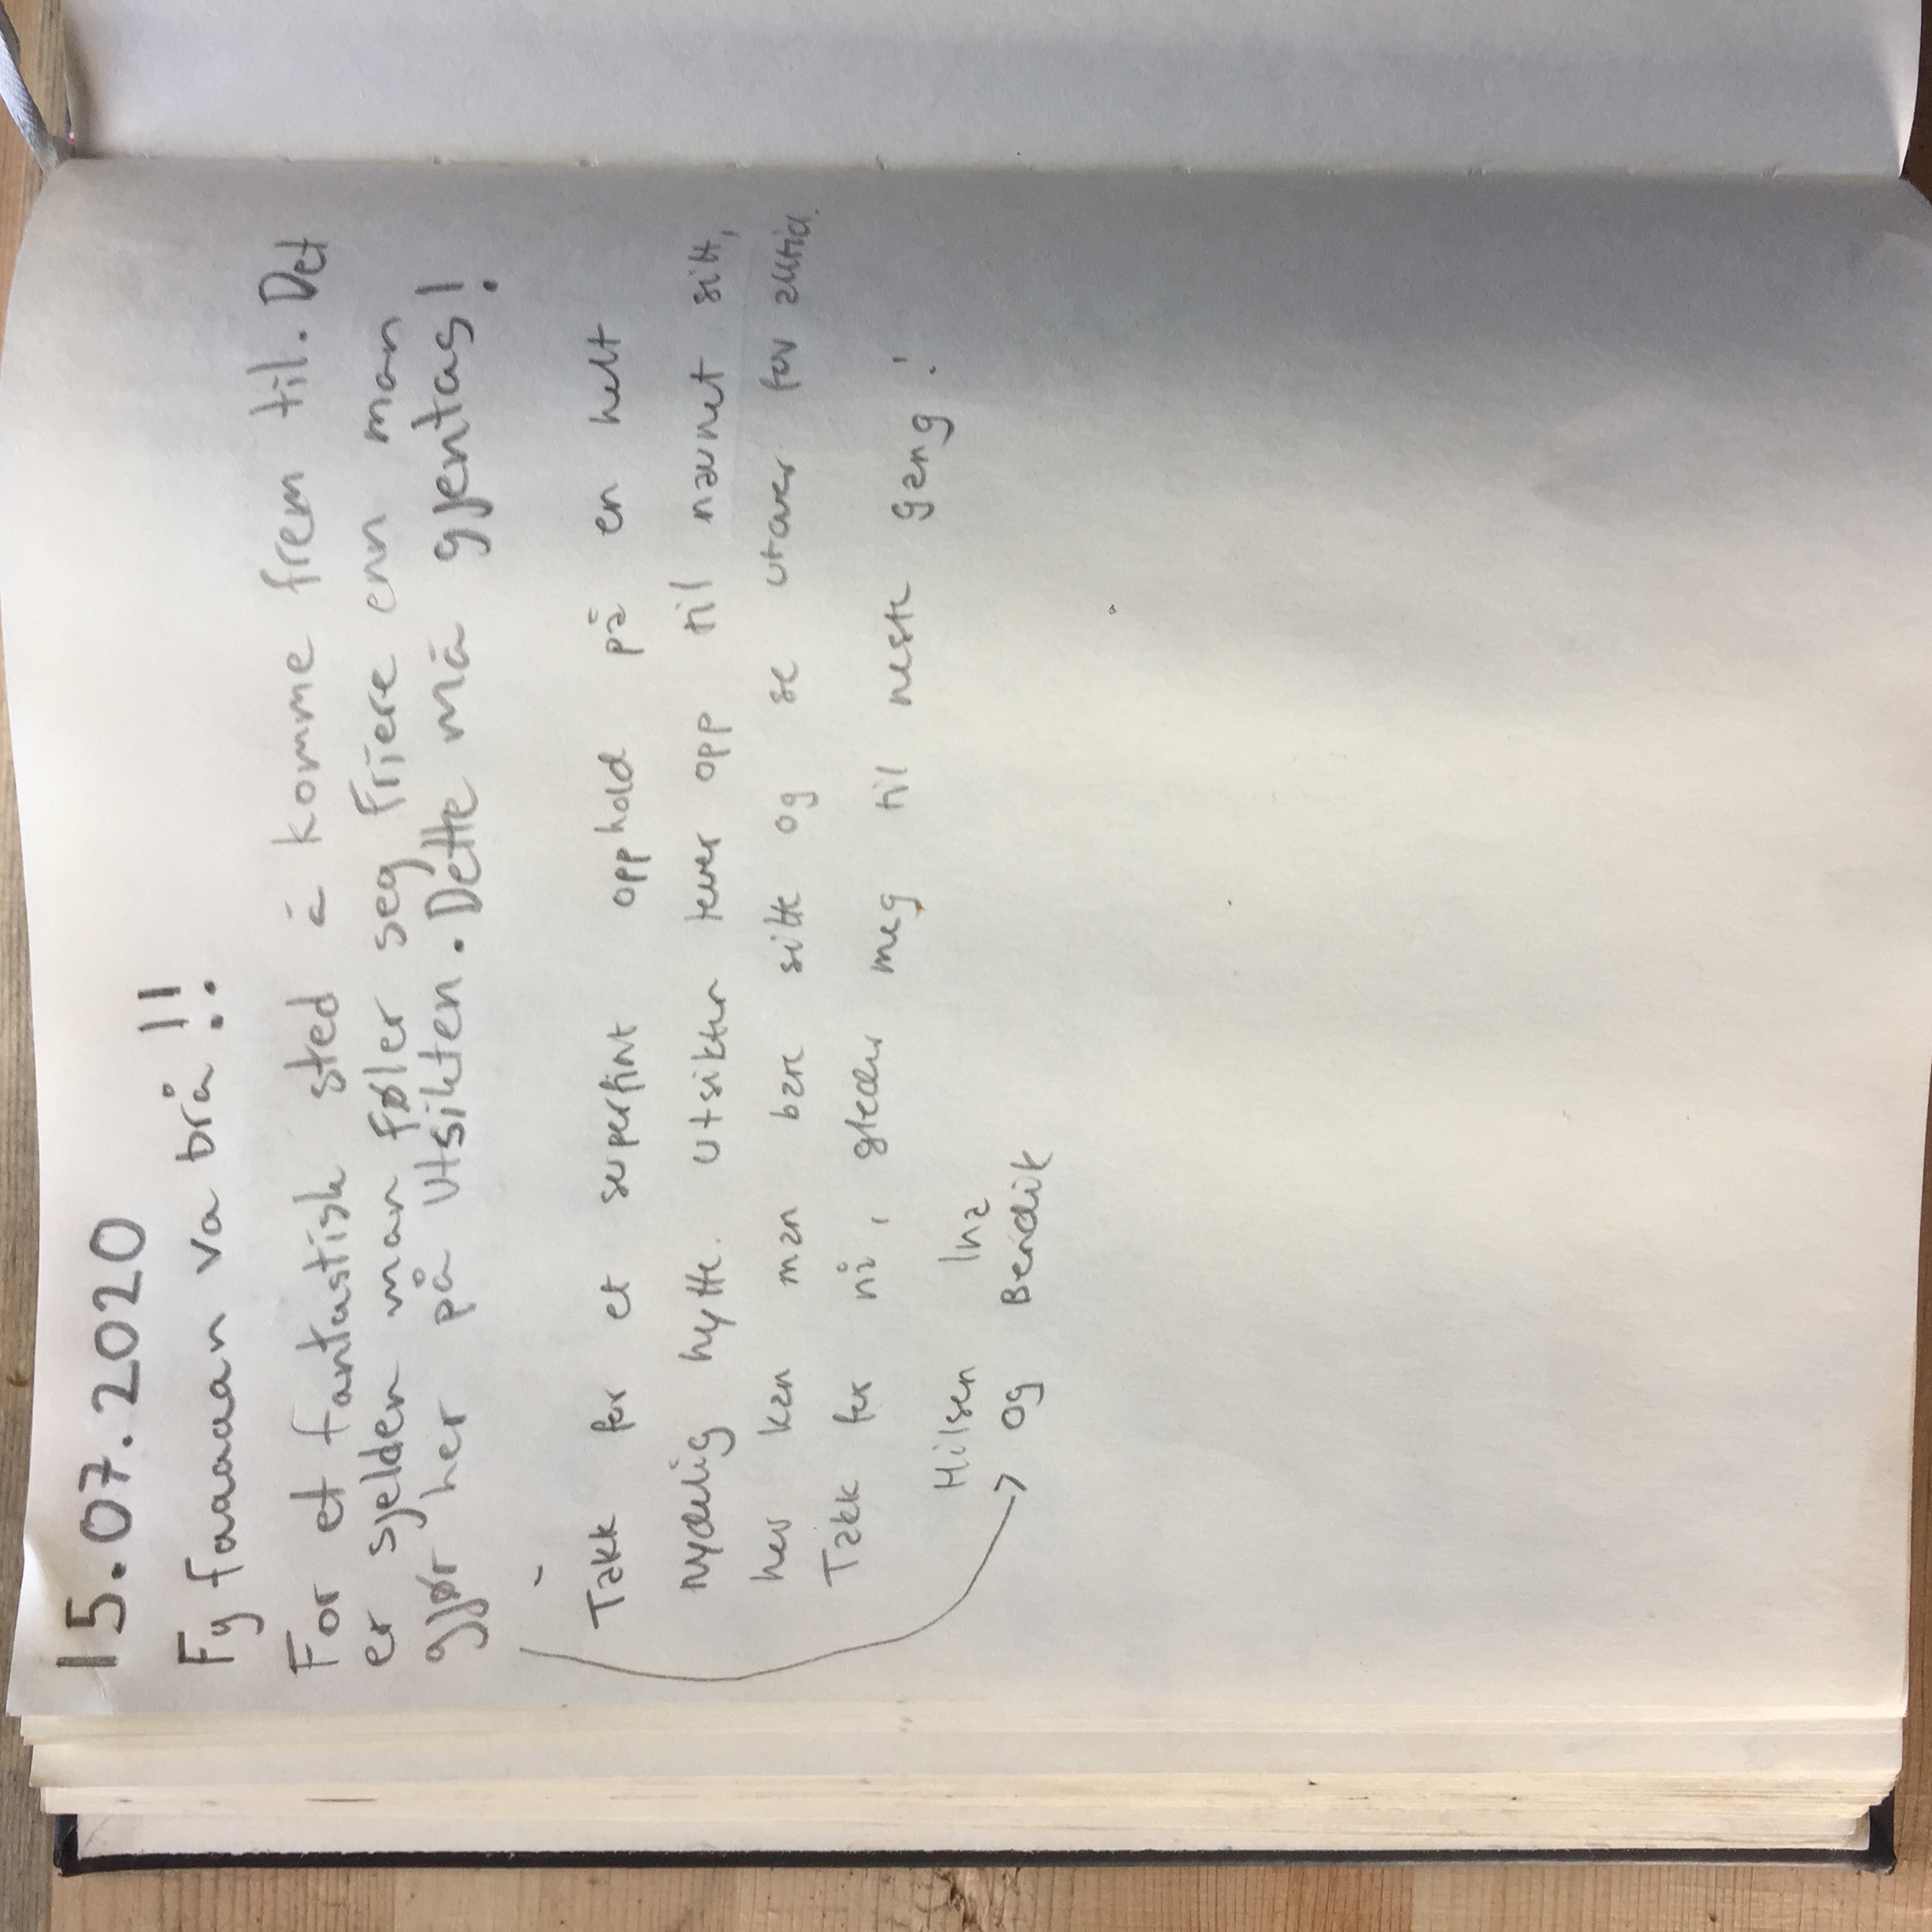 15.07.2020
Fy faaaaan va brå!!
For et fantastisk sted å komme frem til. Det
er sjelden man føler seg friere enn man
gjør her på Utsikten. Dette må gjentas!
-
Takk for et superfint opphold på en helt
nydelig hytte. Utsikten lever opp til navnet sitt,
her kan man bare sitte og se utover for alltid.
Takk for nå, gleder meg til neste gang!
Hilsen Ina
→ og Bendik